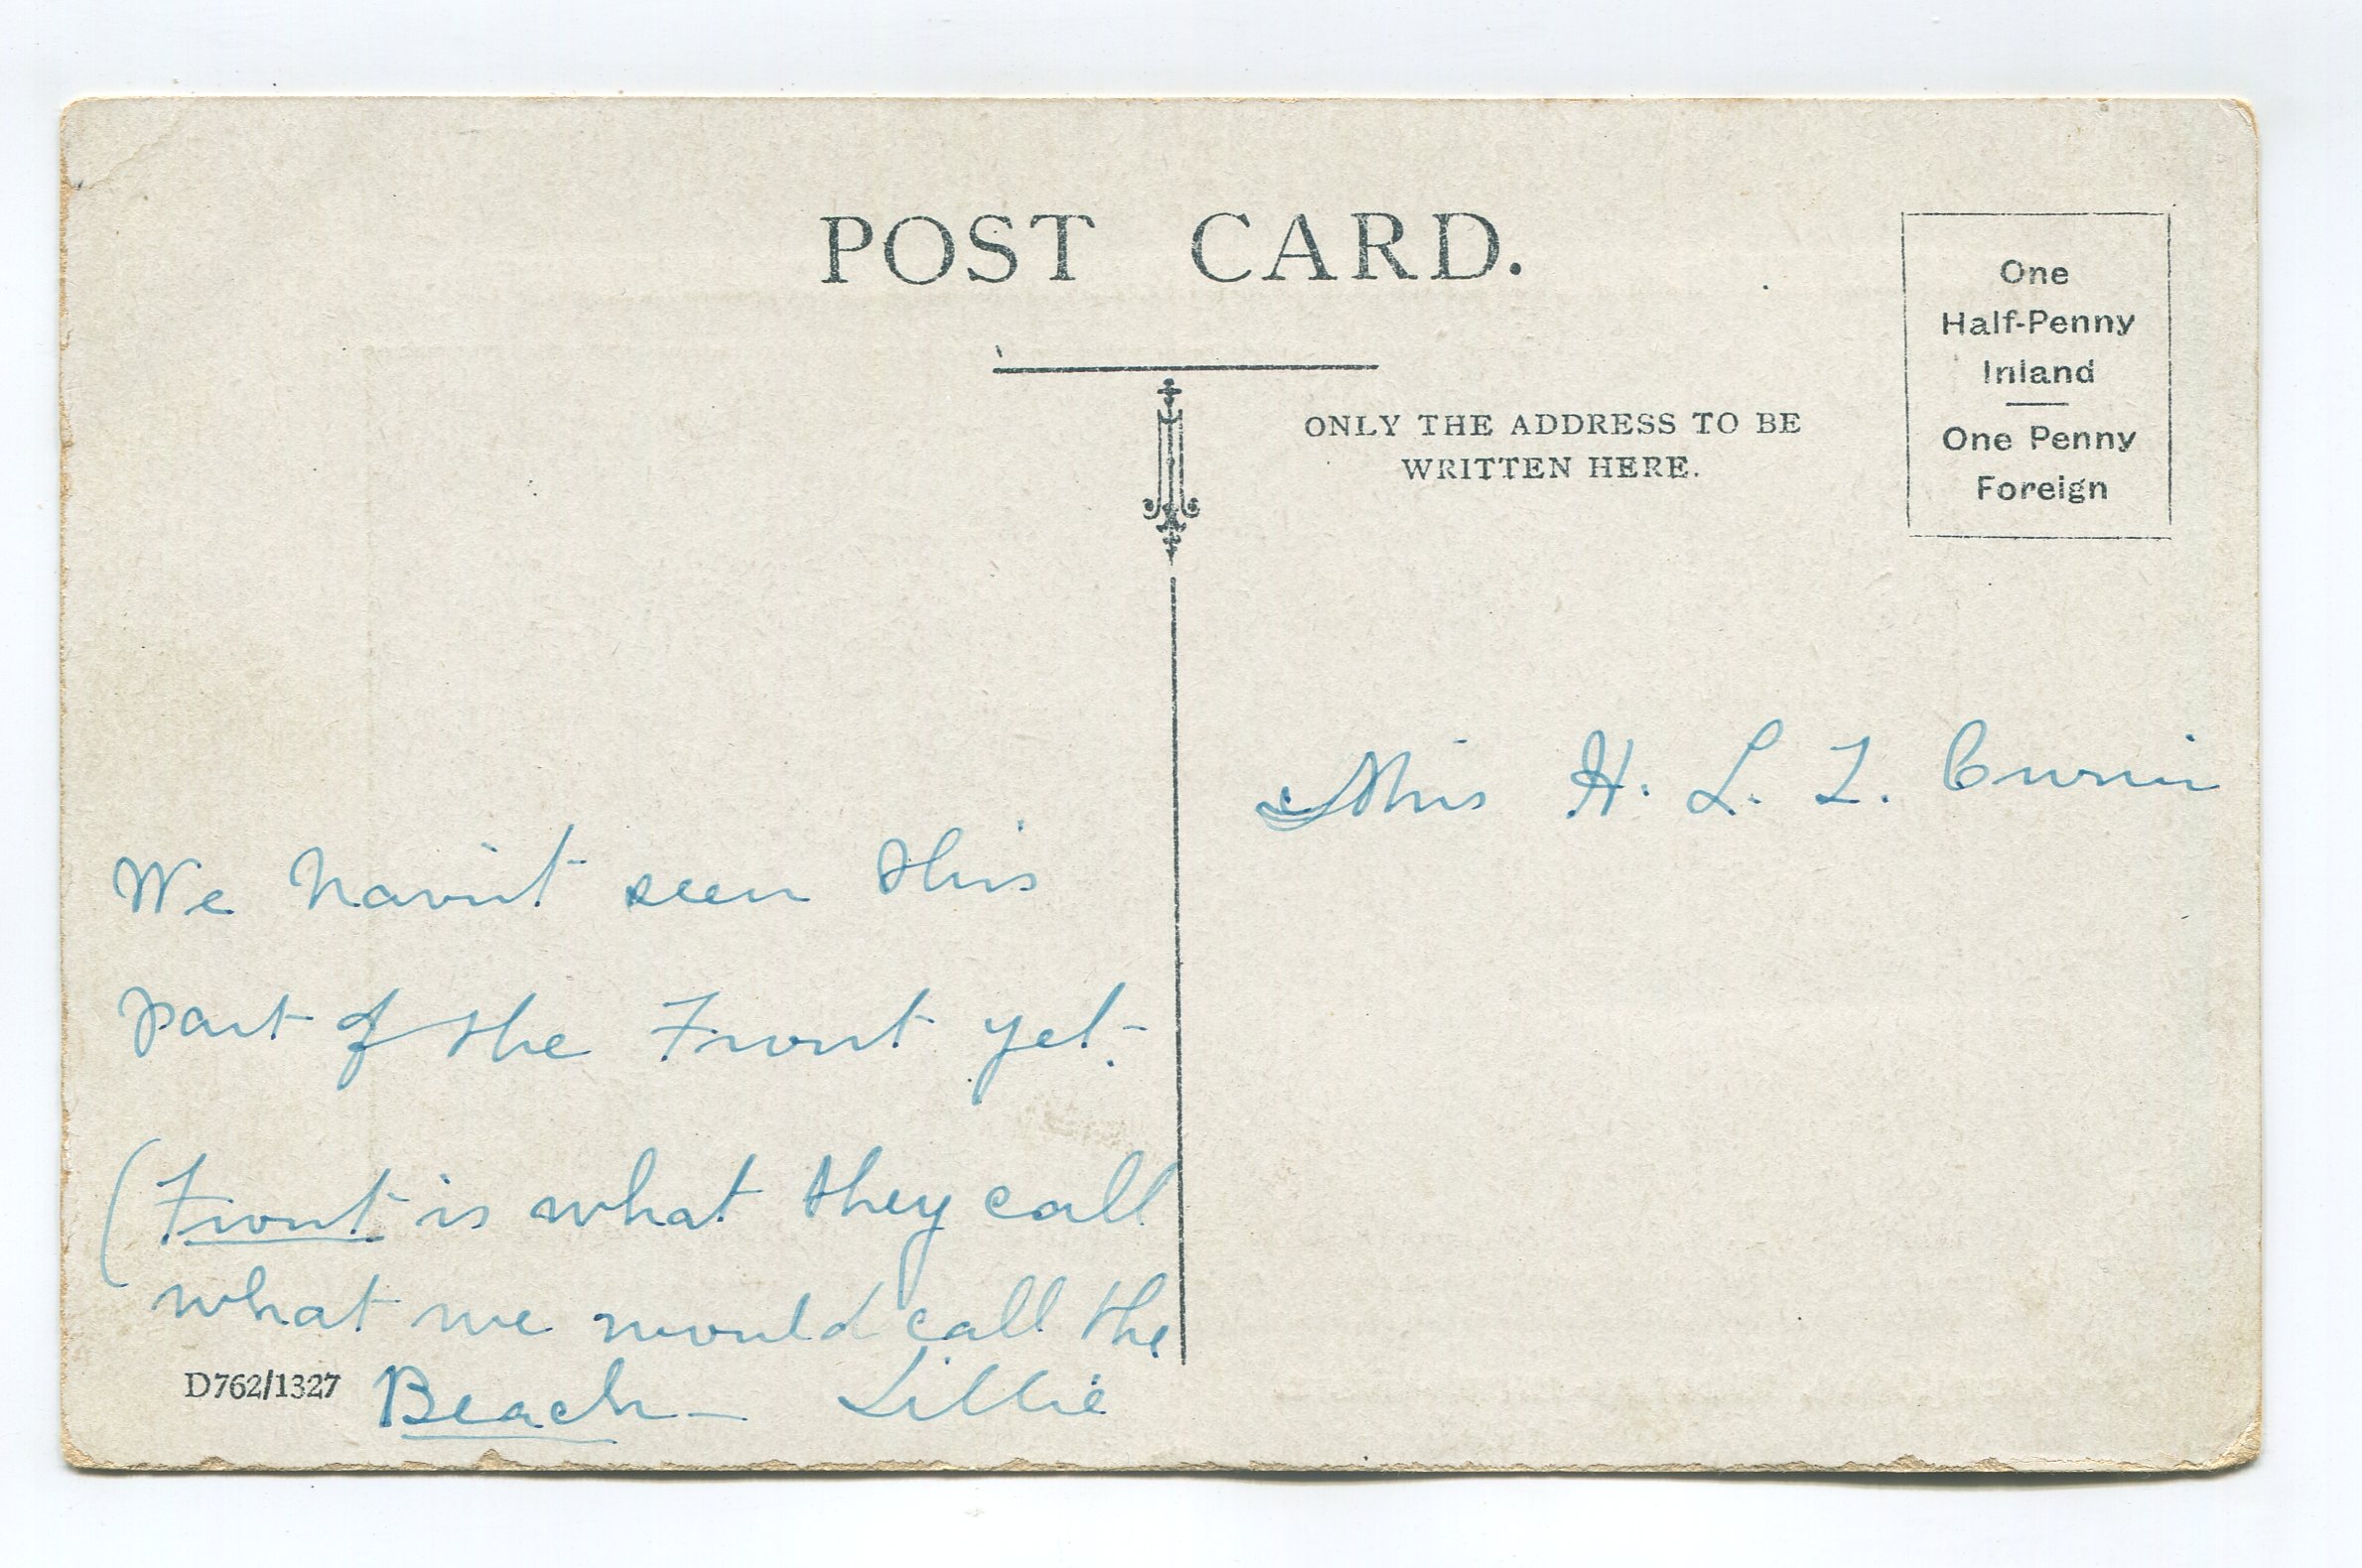 POST CARD.
ONLY THE ADDRESS TO BE
WRITTEN HERE.
One
Half-Penny
Inland
One Penny
Foreign
Miss H. L. L.
We havin't seen this
part of the Front yet.
(Front is what they call
what we would call the
Beach — Lillie
D762/1327